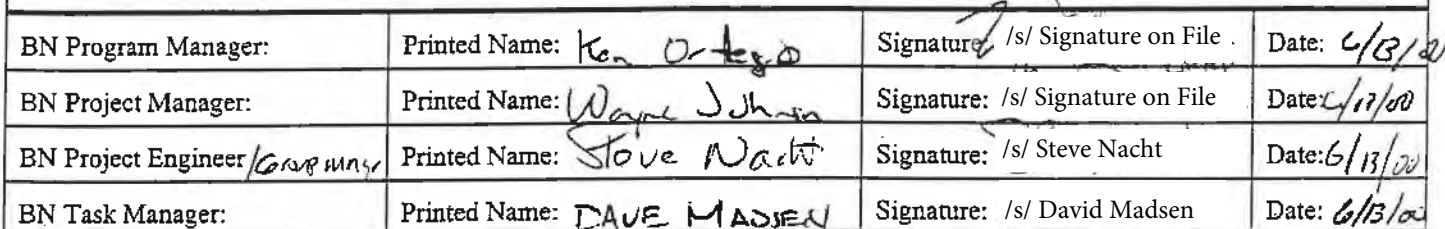 BN Program Manager: Printed Name: Ken Ortego Signature: /s/ Signature on File Date: 6/13/00
BN Project Manager: Printed Name: Wayne Johnson Signature: /s/ Signature on File Date: 6/13/00
BN Project Engineer/Group Mngr Printed Name: Steve Nacht Signature: /s/ Steve Nacht Date: 6/13/00
BN Task Manager: Printed Name: DAVE MADSEN Signature: /s/ David Madsen Date: 6/13/00